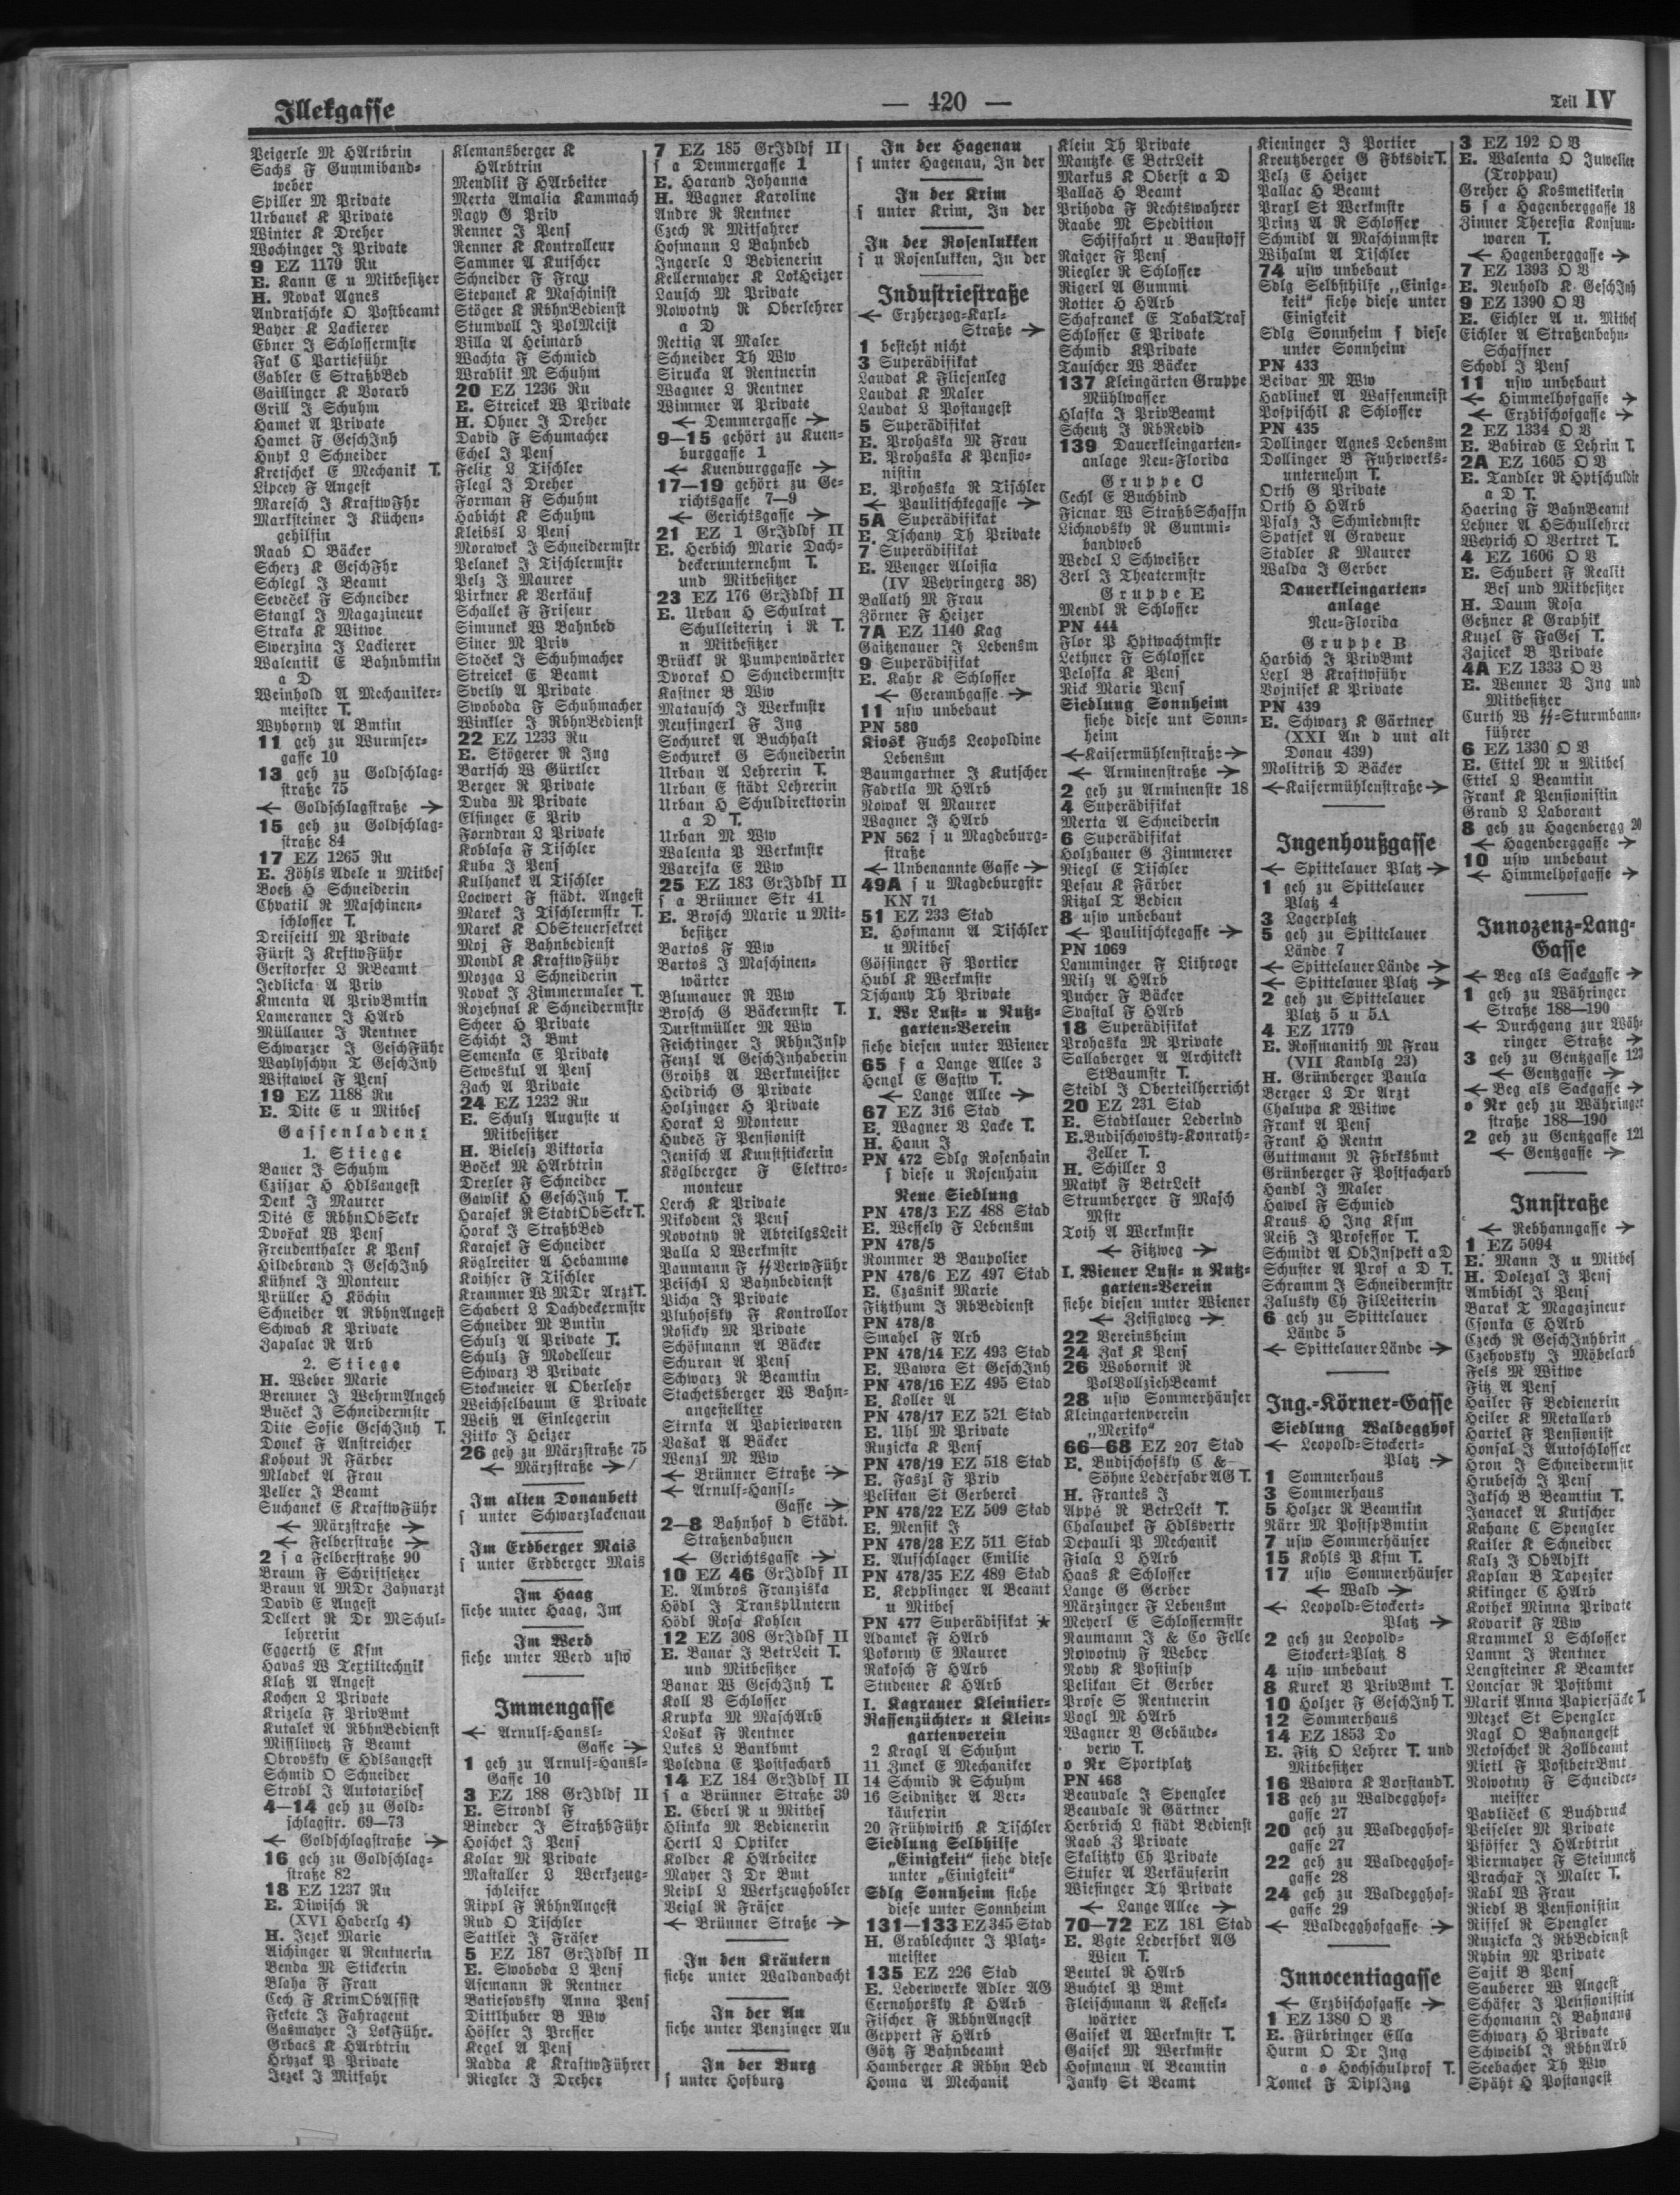 Illekgasse
— 420 —
Teil IV
Peigerle M HArtbrin
Sachs F Gummiband-
weber
Spiller M Private
Urbanek K Private
Winter K Dreher
Wochinger J Private
9 EZ 1179 Ru
E. Kann E u Mitbesitzer
H. Novak Agnes
Andratschke O Postbeamt
Bayer K Lackierer
Ebner J Schlossermstr
Fak C Partieführ
Gabler E StraßbBed
Gaillinger K Vorarb
Grill J Schuhm
Hamet A Private
Hamet F GeschInh
Hnyk L Schneider
Kretschek E Mechanik T.
Lipcey F Angest
Maresch J KraftwFhr
Marksteiner J Küchen-
gehilfin
Raab O Bäcker
Scherz K GeschFhr
Schlegl J Beamt
Seveček F Schneider
Stangl J Magazineur
Straka K Witwe
Swerzina J Lackierer
Walentik E Bahnbmtin
a D
Weinhold A Mechaniker-
meister T.
Wyborny A Bmtin
11 geh zu Wurmser-
gasse 10
13 geh zu Goldschlag-
straße 75
← Goldschlagstraße →
15 geh zu Goldschlag-
straße 84
17 EZ 1265 Ru
E. Zöhls Adele u Mitbes
Boeß H Schneiderin
Chvatil R Maschinen-
schlosser T.
Dreiseitl M Private
Fürst J KrftwFühr
Gerstorfer L RBeamt
Jedlicka A Priv
Kmenta A PrivBmtin
Lameraner J HArb
Müllauer J Rentner
Schwarzer J GeschFühr
Waylyschyn T GeschInh
Wistawel F Pens
19 EZ 1188 Ru
E. Dite E u Mitbes
Gassenladen:
1. Stiege
Bauer J Schuhm
Cziszar H Hdlsangest
Denk J Maurer
Dité E RbhnObSekr
Dvořak W Pens
Freudenthaler K Pens
Hildebrand J GeschInh
Kühnel J Monteur
Prüller H Köchin
Schneider A RbhnAngest
Schwab K Private
Zapalac R Arb
2. Stiege
H. Weber Marie
Brenner J WehrmAngeh
Buček J Schneidermstr
Dite Sofie GeschInh T.
Donek F Anstreicher
Kohout R Färber
Mladek A Frau
Peller J Beamt
Suchanek E KraftwFühr
← Märzstraße →
← Felberstraße →
2 s a Felberstraße 90
Braun F Schriftsetzer
Braun A MDr Zahnarzt
David E Angest
Dellert R Dr MSchul-
lehrerin
Eggerth E Kfm
Havas W Textiltechnik
Klaß A Angest
Kochen L Private
Krizela F PrivBmt
Kutalek A RbhnBedienst
Missliwetz F Beamt
Obrovsky E Hdlsangest
Schmid O Schneider
Strobl J Autotaxibes
4—14 geh zu Gold-
schlagstr. 69—73
← Goldschlagstraße →
16 geh zu Goldschlag-
straße 82
18 EZ 1237 Ru
E. Diwisch R
(XVI Haberlg 4)
H. Jezek Marie
Aichinger A Rentnerin
Benda M Stickerin
Blaha F Frau
Cech F KrimObAssist
Fekete J Fahragent
Gasmayer J LokFühr.
Grbacs K HArbtrin
Hryzak P Private
Jezek J Mitfahr
Klemansberger K
HArbtrin
Mendlik F HArbeiter
Merta Amalia Kammach
Nagy G Priv
Renner J Pens
Renner K Kontrolleur
Sammer A Kutscher
Schneider F Frau
Stepanek K Maschinist
Stöger K RbhnBedienst
Stumvoll J PolMeist
Villa A Heimarb
Wachta F Schmied
Wrablik M Schuhm
20 EZ 1236 Ru
E. Streicek W Private
H. Ohner J Dreher
David F Schumacher
Echel J Pens
Felix L Tischler
Flegl J Dreher
Forman F Schuhm
Habicht K Schuhm
Kleibsl L Pens
Morawek J Schneidermstr
Pelanek J Tischlermstr
Pelz J Maurer
Pirkner K Verkäuf
Schallek F Friseur
Simunek W Bahnbed
Siner M Priv
Stoček J Schuhmacher
Streicek E Beamt
Svetly A Private
Swoboda F Schuhmacher
Winkler J RbhnBedienst
22 EZ 1233 Ru
E. Stögerer R Ing
Bartsch W Gürtler
Berger R Private
Duda M Private
Elsinger E Priv
Forndran L Private
Koblasa F Tischler
Kuba J Pens
Kulhanek A Tischler
Loewert F städt. Angest
Marek J Tischlermstr T.
Marek K ObSteuersekret
Moj F Bahnbedienst
Mondl K KraftwFühr
Mozga L Schneiderin
Novak J Zimmermaler T.
Rozehnal K Schneidermstr
Scheer H Private
Schicht J Bmt
Semenka E Private
Seweskul A Pens
Zach A Private
24 EZ 1232 Ru
E. Schulz Auguste u
Mitbesitzer
H. Bielesz Viktoria
Boček M HArbtrin
Drexler F Schneider
Gawlik H GeschInh T.
Harasek R StadtObSekrT.
Horak J StraßbBed
Karasek F Schneider
Köglreiter A Hebamme
Koihser F Tischler
Krammer W MDr ArztT.
Schabert L Dachdeckermstr
Schneider M Bmtin
Schulz A Private T.
Schulz F Modelleur
Schwarz B Private
Stockmeier A Oberlehr
Weichselbaum E Private
Weiß A Einlegerin
Zitko J Heizer
26 geh zu Märzstraße 75
← Märzstraße →
Im alten Donaubett
s unter Schwarzlackenau
Im Erdberger Mais
s unter Erdberger Mais
Im Haag
siehe unter Haag, Im
Im Werd
siehe unter Werd usw
Immengasse
← Arnulf-Hansl-
Gasse →
1 geh zu Arnulf-Hansl-
Gasse 10
3 EZ 188 GrJdldf II
E. Strondl F
Bineder J StraßbFühr
Hoschek J Pens
Kolar M Private
Mastaller L Werkzeug-
schleifer
Rippl F RbhnAngest
Rud O Tischler
Sattler J Fräser
5 EZ 187 GrJdldf II
E. Swoboda L Pens
Asemann R Rentner
Batiesovsky Anna Pens
Dittlhuber B Ww
Hösler J Presser
Kegel A Pens
Radda K KraftwFührer
Riegler J Dreher
7 EZ 185 GrJdldf II
s a Demmergasse 1
E. Harand Johanna
H. Wagner Karoline
Andre R Rentner
Czech R Mitfahrer
Hofmann L Bahnbed
Ingerle L Bedienerin
Kellermayer K LokHeizer
Lausch M Private
Nowotny R Oberlehrer
a D
Rettig A Maler
Schneider Th Ww
Sirucka A Rentnerin
Wagner L Rentner
Wimmer A Private
← Demmergasse →
9—15 gehört zu Kuen-
burggasse 1
← Kuenburggasse →
17—19 gehört zu Ge-
richtsgasse 7—9
← Gerichtsgasse →
21 EZ 1 GrJdldf II
E. Herbich Marie Dach-
deckerunternehm T.
und Mitbesitzer
23 EZ 176 GrJdldf II
E. Urban H Schulrat
Schulleiterin i R T.
u Mitbesitzer
Brückl R Pumpenwärter
Dvorak O Schneidermstr
Kastner B Ww
Matausch J Werkmstr
Neufingerl F Ing
Sochurek A Buchhalt
Sochurek G Schneiderin
Urban A Lehrerin T.
Urban E städt Lehrerin
Urban H Schuldirektorin
a D T.
Urban M Ww
Walenta P Werkmstr
Warejka E Ww
25 EZ 183 GrJdldf II
s a Brünner Str 41
E. Brosch Marie u Mit-
besitzer
Bartos F Ww
Bartos J Maschinen-
wärter
Blumauer R Ww
Brosch G Bäckermstr T.
Durstmüller M Ww
Feichtinger J RbhnInsp
Fenzl A GeschInhaberin
Groihs A Werkmeister
Heidrich G Private
Holzinger H Private
Horak L Monteur
Hudeč F Pensionist
Jenisch A Kunststickerin
Köglberger F Elektro-
monteur
Lerch K Private
Nikodem J Pens
Novotny R AbteilgsLeit
Palla L Werkmstr
Paumann F ᛋᛋVerwFühr
Peischl L Bahnbedienst
Picha J Private
Pluhofsky F Kontrollor
Rosicky M Private
Schöfmann A Bäcker
Schuran A Pens
Schwarz R Beamtin
Stachetsberger W Bahn-
angestellter
Strnka A Papierwaren
Vašak A Bäcker
Wenzl M Ww
← Brünner Straße →
← Arnulf-Hansl-
Gasse →
2—8 Bahnhof d Städt.
Straßenbahnen
← Gerichtsgasse →
10 EZ 46 GrJdldf II
E. Ambros Franziska
Hödl J TranspUntern
Hödl Rosa Kohlen
12 EZ 308 GrJdldf II
E. Banar J BetrLeit T.
und Mitbesitzer
Banar W GeschInh T.
Koll V Schlosser
Krupka M MaschArb
Lošak F Rentner
Lukes L Bankbmt
Poledna E Postfacharb
14 EZ 184 GrJdldf II
s a Brünner Straße 39
E. Eberl R u Mitbes
Hlinka M Bedienerin
Hertl L Optiker
Kolder K HArbeiter
Mayer J Dr Bmt
Neipl L Werkzeughobler
Veigl R Fräser
← Brünner Straße →
In den Kräutern
siehe unter Waldandacht
In der Au
siehe unter Penzinger Au
In der Burg
s unter Hofburg
In der Hagenau
s unter Hagenau, In der
In der Krim
s unter Krim, In der
In der Rosenlukken
s u Rosenlukken, In der
Industriestraße
← Erzherzog-Karl-
Straße →
1 besteht nicht
3 Superädifikat
Laudat K Fliesenleg
Laudat K Maler
Laudat L Postangest
5 Superädifikat
E. Prohaska M Frau
E. Prohaska K Pensio-
nistin
E. Prohaska R Tischler
← Paulitschkegasse →
5A Superädifikat
E. Tschany Th Private
7 Superädifikat
E. Wenger Aloisia
(IV Weyringerg 38)
Ballath M Frau
Zörner F Heizer
7A EZ 1140 Kag
Gaitzenauer J Lebensm
9 Superädifikat
E. Kahr K Schlosser
← Gerambgasse →
11 usw unbebaut
PN 580
Kiosk Fuchs Leopoldine
Lebensm
Baumgartner J Kutscher
Fadrtla M HArb
Nowak A Maurer
Wagner J HArb
PN 562 s u Magdeburg-
straße
← Unbenannte Gasse →
49A s u Magdeburgstr
KN 71
51 EZ 233 Stad
E. Hofmann A Tischler
u Mitbes
Gössinger F Portier
Hubl K Werkmstr
Tschany Th Private
I. Wr Lust- u Nutz-
garten-Verein
siehe diesen unter Wiener
65 s a Lange Allee 3
Hengl E Gastw T.
← Lange Allee →
67 EZ 316 Stad
E. Wagner V Lacke T.
H. Hann J
PN 472 Sdlg Rosenhain
s diese u Rosenhain
Neue Siedlung
PN 478/3 EZ 488 Stad
E. Wessely F Lebensm
PN 478/5
Rommer B Baupolier
PN 478/6 EZ 497 Stad
E. Czasnik Marie
Fitzthum J RbBedienst
PN 478/8
Smahel F Arb
PN 478/14 EZ 493 Stad
E. Wawra St GeschInh
PN 478/16 EZ 495 Stad
E. Koller A
PN 478/17 EZ 521 Stad
E. Uhl M Private
Ruzicka K Pens
PN 478/19 EZ 518 Stad
E. Faszl F Priv
Pelikan St Gerberei
PN 478/22 EZ 509 Stad
E. Mensik J
PN 478/28 EZ 511 Stad
E. Aufschlager Emilie
PN 478/35 EZ 489 Stad
E. Kepplinger A Beamt
u Mitbes
PN 477 Superädifikat ★
Adamek F HArb
Pokorny E Maurer
Rakosch F HArb
Studener K HArb
I. Kagrauer Kleintier-
Rassenzüchter- u Klein-
gartenverein
2 Kragl A Schuhm
11 Zmek E Mechaniker
14 Schmid R Schuhm
16 Seidnitzer A Ver-
käuferin
20 Frühwirth K Tischler
Siedlung Selbhilfe
„Einigkeit“ siehe diese
unter „Einigkeit“
Sdlg Sonnheim siehe
diese unter Sonnheim
131—133 EZ 345 Stad
H. Grablechner J Platz-
meister
135 EZ 226 Stad
E. Lederwerke Adler AG
Cernohorsky K HArb
Fischer F RbhnAngest
Geppert F HArb
Götz F Bahnbeamt
Hamberger K Rbhn Bed
Homa A Mechanik
Klein Th Private
Mantzke E BetrLeit
Markus K Oberst a D
Pallač H Beamt
Prihoda F Rechtswahrer
Raabe M Spedition
Schiffahrt u Baustoff
Raiger F Pens
Riegler R Schlosser
Rigerl A Gummi
Rotter H HArb
Schafranek E TabakTraf
Schlosser E Private
Schmid KPrivate
Tauscher W Bäcker
137 Kleingärten Gruppe
Mühlwasser
Hlaska J PrivBeamt
Scheutz J RbRevid
139 Dauerkleingarten-
anlage Neu-Florida
Gruppe C
Cechl E Buchbind
Ficnar W StraßbSchaffn
Lichnovsky R Gummi-
bandweb
Wedel L Schweißer
Zerl J Theatermstr
Gruppe E
Mendl R Schlosser
PN 444
Flor P Hptwachtmstr
Lethner F Schlosser
Peloska K Pens
Rick Marie Pens
Siedlung Sonnheim
siehe diese unt Sonn-
heim
←Kaisermühlenstraße→
← Arminenstraße →
2 geh zu Arminenstr 18
4 Superädifikat
Merta A Schneiderin
6 Superädifikat
Holzbauer G Zimmerer
Riegl E Tischler
Pesau K Färber
Ritzal T Bedien
8 usw unbebaut
← Paulitschkegasse →
PN 1069
Lamminger F Lithogr
Milz A HArb
Pucher F Bäcker
Svastal F HArb
18 Superädifikat
Prohaska M Private
Sallaberger A Architekt
StBaumstr T.
Steidl J Oberteilherricht
20 EZ 231 Stad
E. Stadtlauer Lederind
E.Budischowsky-Konrath-
Zeller T.
H. Schiller L
Matyk F BetrLeit
Strumberger F Masch
Mstr
Toth A Werkmstr
← Fitzweg →
I. Wiener Lust- u Nutz-
garten-Verein
siehe diesen unter Wiener
← Zeisigweg →
22 Vereinsheim
24 Zak K Pens
26 Wobornik R
PolVollziehBeamt
28 usw Sommerhäuser
Kleingartenverein
„Mexiko“
66—68 EZ 207 Stad
E. Budischofsky C &
Söhne Lederfabr AG T.
H. Frantes J
Appé R BetrLeit T.
Chalaupek F Hdlsvertr
Depauli P Mechanik
Fiala L HArb
Haas K Schlosser
Lange G Gerber
Märzinger F Lebensm
Meyerl E Schlossermstr
Naumann J & Co Felle
Nowotny F Weber
Novy K Postinsp
Pelikan St Gerber
Prose S Rentnerin
Vogl M HArb
Wagner V Gebäude-
verw T.
o Nr Sportplatz
PN 468
Beauvale J Spengler
Beauvale R Gärtner
Herbrich L städt Bedienst
Raab Z Private
Skalitzky Ch Private
Stufer A Verkäuferin
Wiesinger Th Private
← Lange Allee →
70—72 EZ 181 Stad
E. Vgte Lederfbrk AG
Wien T.
Beutel R HArb
Buchtel P Bmt
Fleischmann A Kessel-
wärter
Gaisek A Werkmstr T.
Gaisek M Werkmstr
Hofmann A Beamtin
Janky St Beamt
Kieninger J Portier
Kreutzberger G FbksdirT.
Pelz E Heizer
Pallac H Beamt
Praxl St Werkmstr
Prinz A R Schlosser
Schmidl A Maschinmstr
Wihalm A Tischler
74 usw unbebaut
Sdlg Selbsthilfe „Einig-
keit“ siehe diese unter
Einigkeit
Sdlg Sonnheim s diese
unter Sonnheim
PN 433
Beivar M Ww
Havlinek A Waffenmeist
Pospischil K Schlosser
PN 435
Dollinger Agnes Lebensm
Dollinger B Fuhrwerks-
unternehm T.
Orth G Private
Orth H HArb
Pfalz J Schmiedmstr
Spatsek A Graveur
Stadler K Maurer
Walda J Gerber
Dauerkleingarten-
anlage
Neu-Florida
Gruppe B
Harbich J PrivBmt
Lexl B Kraftwführ
Vojnisek K Private
PN 439
E. Schwarz K Gärtner
(XXI An d unt alt
Donau 439)
Molitriß D Bäcker
←Kaisermühlenstraße→
Ingenhoußgasse
← Spittelauer Platz →
1 geh zu Spittelauer
Platz 4
3 Lagerplatz
5 geh zu Spittelauer
Lände 7
← Spittelauer Lände →
← Spittelauer Platz →
2 geh zu Spittelauer
Platz 5 u 5A
4 EZ 1779
E. Rossmanith M Frau
(VII Kandlg 23)
H. Grünberger Paula
Berger L Dr Arzt
Chalupa K Witwe
Frank A Pens
Frank H Rentn
Guttmann R Fbrksbmt
Grünberger F Postfacharb
Handl J Maler
Hawel F Schmied
Kraus H Ing Kfm
Reiß J Professor T.
Schmidt A ObInspekt a D
Schuster A Prof a D T.
Schramm J Schneidermstr
Zalusky Ch FilLeiterin
6 geh zu Spittelauer
Lände 5
← Spittelauer Lände →
Ing.-Körner-Gasse
Siedlung Waldegghof
← Leopold-Stockert-
Platz →
1 Sommerhaus
3 Sommerhaus
5 Holzer R Beamtin
Närr M PostspBmtin
7 usw Sommerhäuser
15 Kohls P Kfm T.
17 usw Sommerhäuser
← Wald →
← Leopold-Stockert-
Platz →
2 geh zu Leopold-
Stockert-Platz 8
4 usw unbebaut
8 Kurek V PrivBmt T.
10 Holzer F GeschInh T.
12 Sommerhaus
14 EZ 1853 Do
E. Fitz O Lehrer T. und
Mitbesitzer
16 Wawra K VorstandT.
18 geh zu Waldegghof-
gasse 27
20 geh zu Waldegghof-
gasse 27
22 geh zu Waldegghof-
gasse 28
24 geh zu Waldegghof-
gasse 29
← Waldegghofgasse →
Innocentiagasse
← Erzbischofgasse →
1 EZ 1380 O V
E. Fürbringer Ella
Hurm O Dr Ing
a o Hochschulprof T.
Tomek F DiplIng
3 EZ 192 O V
E. Walenta O Juwelier
(Troppau)
Greher H Kosmetikerin
5 s a Hagenberggasse 18
Zinner Theresia Konsum-
waren T.
← Hagenberggasse →
7 EZ 1393 O V
E. Neuhold K GeschInh
9 EZ 1390 O V
E. Eichler A u. Mitbes
Eichler A Straßenbahn-
Schaffner
Schodl J Pens
11 usw unbebaut
← Himmelhofgasse →
← Erzbischofgasse →
2 EZ 1334 O V
E. Babirad E Lehrin T.
2A EZ 1605 O V
E. Tandler R Hptschuldir
a D T.
Haering F BahnBeamt
Lehner A HSchullehrer
Weyrich O Vertret T.
4 EZ 1606 O V
E. Schubert F Realit
Bes und Mitbesitzer
H. Daum Rosa
Geßner K Graphik
Kuzel F FaGes T.
Zajicek B Private
4A EZ 1333 O V
E. Wenner V Ing und
Mitbesitzer
Curth W ᛋᛋ-Sturmbann-
führer
6 EZ 1330 O V
E. Ettel M u Mitbes
Ettel L Beamtin
Frank K Pensionistin
Grand L Laborant
8 geh zu Hagenbergg 20
← Hagenberggasse →
10 usw unbebaut
← Himmelhofgasse →
Innozenz-Lang-
Gasse
← Beg als Sackgasse →
1 geh zu Währinger
Straße 188—190
← Durchgang zur Wäh-
ringer Straße →
3 geh zu Gentzgasse 123
← Gentzgasse →
← Beg als Sackgasse →
o Nr geh zu Währinger
straße 188—190
2 geh zu Gentzgasse 121
← Gentzgasse →
Innstraße
← Rebhanngasse →
1 EZ 5094
E. Mann J u Mitbes
H. Dolezal J Pens
Ambichl J Pens
Barak T Magazineur
Csonka E HArb
Czech R GeschInhbrin
Czehovsky J Möbelarb
Fels M Witwe
Fitz A Pens
Hailer F Bedienerin
Heiler K Metallarb
Hartel F Pensionist
Honsal J Autoschlosser
Hron J Schneidermstr
Hrubesch J Pens
Jaksch B Beamtin T.
Janacek A Kutscher
Kahane C Spengler
Kailer K Schneider
Kalz J ObAdjkt
Kaplan B Tapezier
Kikinger C HArb
Kothek Minna Private
Kovarik F Ww
Krammel L Schlosser
Lamm J Rentner
Lengsteiner K Beamter
Loncsar R Postbmt
Marik Anna Papiersäcke T.
Mezek St Spengler
Nagl O Bahnangest
Netoschek R Zollbeamt
Nietl F PostbetrBmt
Nowotny F Schneider-
meister
Pavliček C Buchdruck
Peiseler M Private
Pfösser J HArbtrin
Piermayer F Steinmetz
Prachař J Maler T.
Rabl W Frau
Riedl B Pensionistin
Riffel R Spengler
Ruzicka J RbBedienst
Rybin M Private
Sajik B Pens
Sauberer W Angest
Schäfer J Pensionistin
Schomann J Bahnang
Schwarz H Private
Schweibl J RbhnArb
Seebacher Th Ww
Späht H Postangest